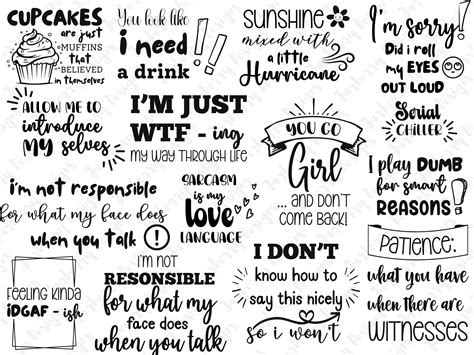 CUPCAKES
are just
MUFFINS
that
BELIEVED
in themselves
You look like
i need
a drink
SUNSHINE
mixed with
a little
Hurricane
i'm sorry!
Did i roll
my EYES
OUT LOUD
ALLOW ME to
introduce
MY selves
I'M JUST
WTF - ing
my WAY THROUGH LIFE
YOU GO
Girl
... and DON'T
COME BACK!
Serial
CHILLER
I play DUMB
for smart
REASONS!
i'm not responsible
for what my face does
when you talk
SARCASM
is my
love
LANGUAGE
PATIENCE:
what you have
when there are
WITNESSES
FEELING KINDA
iDGAF - ish
I'M NOT
RESONSIBLE
for what my
face does
when you talk
I DON'T
know how to
say this nicely
so i won't